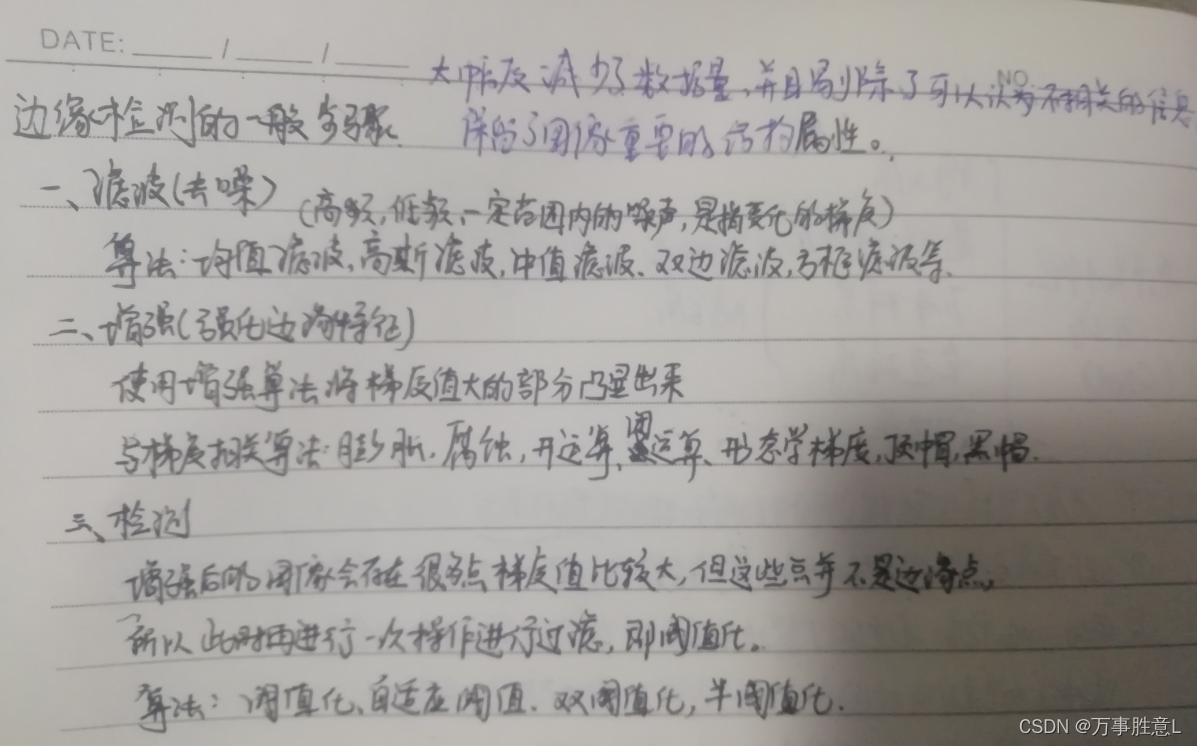 DATE: ____ / ____ / ____
NO
大幅度减少了数据量,并且剔除了可以认为不相关的信息
边缘检测的一般步骤. 保留了图像重要的结构属性。
一、滤波(去噪) (高频,低频,一定范围内的噪声,是指变化的梯度)
算法:均值滤波,高斯滤波,中值滤波、双边滤波,方框滤波等.
二、增强(强化边缘特征)
使用增强算法将梯度值大的部分凸显出来
与梯度相关算法:膨胀,腐蚀,开运算、闭运算、形态学梯度,顶帽,黑帽.
三、检测
增强后的图像会存在很多点梯度值比较大,但这些点并不是边缘点,
所以此时再进行一次操作进行过滤,即阈值化。
算法: 阈值化、自适应阈值、双阈值化,半阈值化.
CSDN @万事胜意L